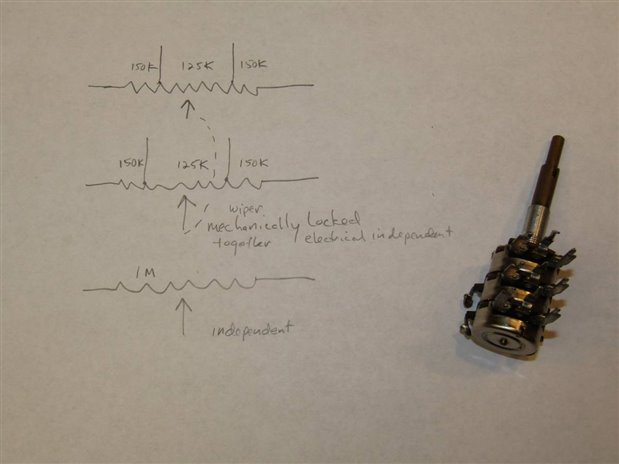 150K 125K 150K
150K 125K 150K
wiper
mechanically Locked
together electrical independent
1M
independent